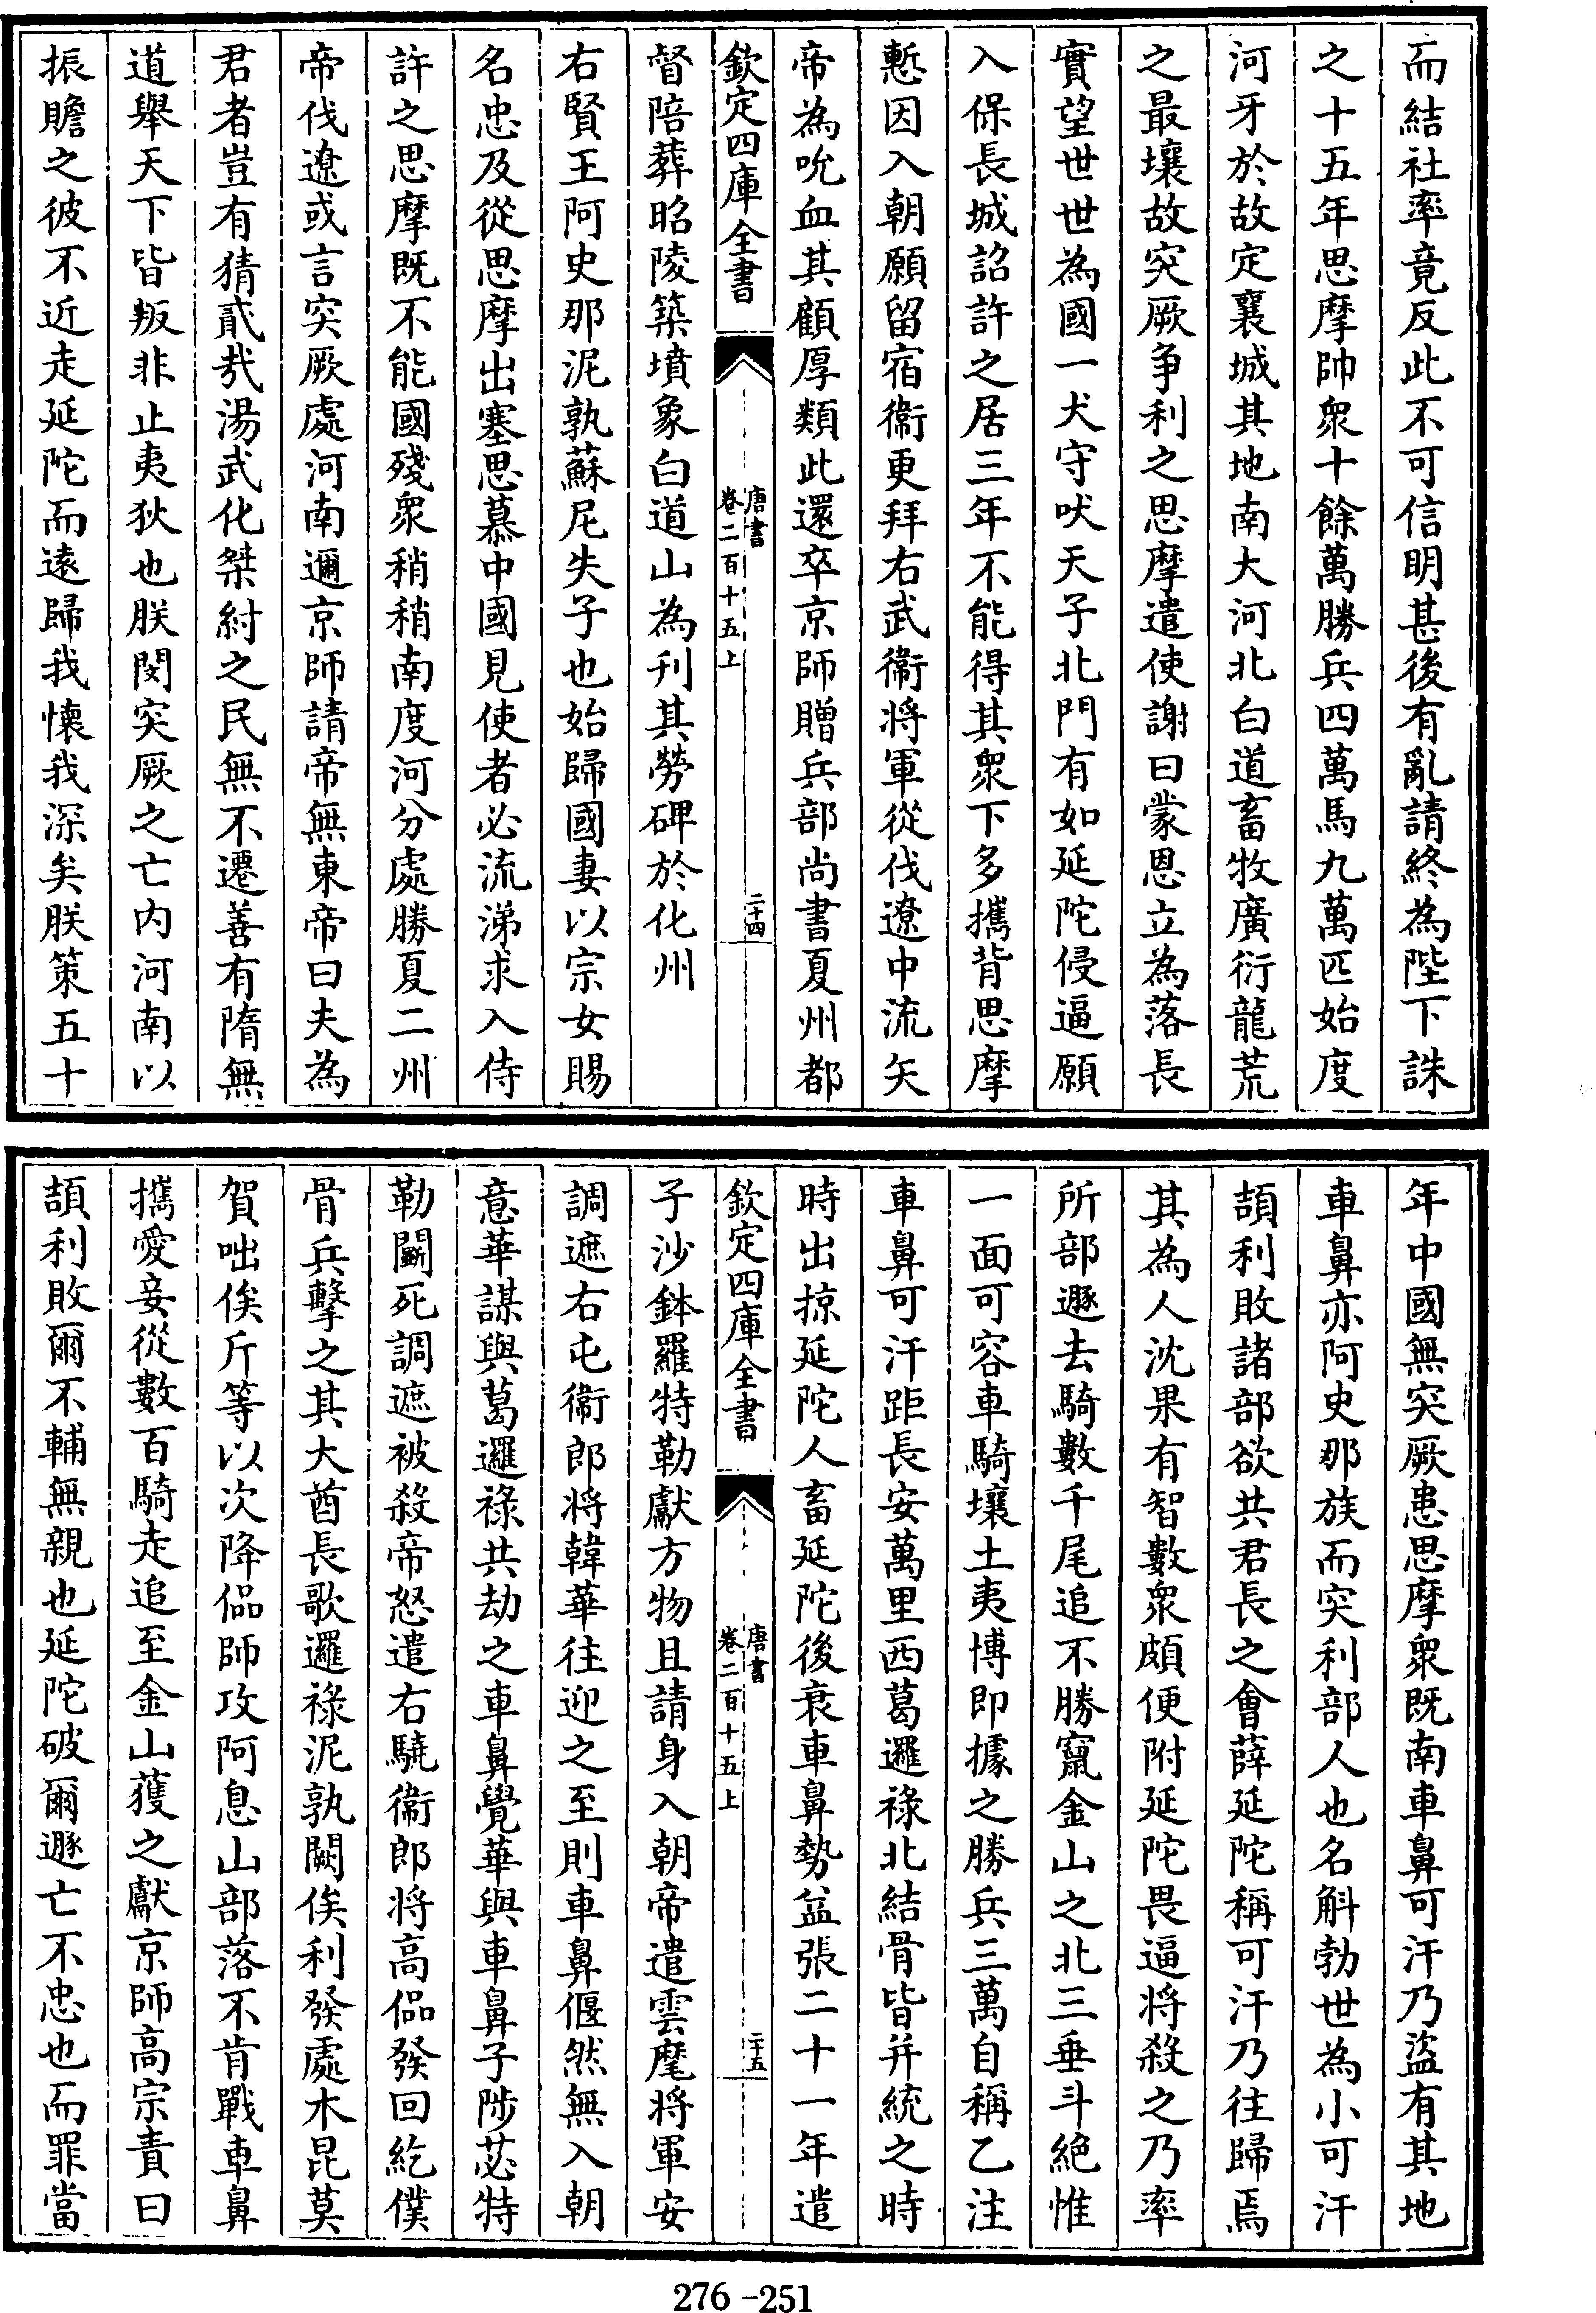 而結社率竟反此不可信明甚後有亂請終為陛下誅
之十五年思摩帥衆十餘萬勝兵四萬馬九萬匹始度
河牙於故定襄城其地南大河北白道畜牧廣衍龍荒
之最壤故突厥争利之思摩遣使謝曰蒙恩立為落長
實望世世為國一犬守吠天子北門有如延陀侵逼願
入保長城詔許之居三年不能得其衆下多攜背思摩
慙因入朝願留宿衞更拜右武衞将軍從伐遼中流矢
帝為吮血其顧厚類此還卒京師贈兵部尚書夏州都
欽定四庫全書
唐書
卷二百十五上
二十四
督陪葬昭陵築墳象白道山為刋其勞碑於化州
右賢王阿史那泥孰蘇尼失子也始歸國妻以宗女賜
名忠及從思摩出塞思慕中國見使者必流涕求入侍
許之思摩既不能國殘衆稍稍南度河分處勝夏二州
帝伐遼或言突厥處河南邇京師請帝無東帝曰夫為
君者豈有猜貳㢤湯武化桀紂之民無不遷善有隋無
道舉天下皆叛非止夷狄也朕閔突厥之亡内河南以
振贍之彼不近走延陀而逺歸我懐我深矣朕策五十
年中國無突厥患思摩衆既南車鼻可汗乃盜有其地
車鼻亦阿史那族而突利部人也名斛勃世為小可汗
頡利敗諸部欲共君長之會薛延陀稱可汗乃往歸焉
其為人沈果有智數衆頗便附延陀畏逼将殺之乃率
所部遯去騎數千尾追不勝竄金山之北三垂斗絶惟
一面可容車騎壤土夷博即據之勝兵三萬自稱乙注
車鼻可汗距長安萬里西葛邏祿北結骨皆并統之時
時出掠延陀人畜延陀後衰車鼻勢益張二十一年遣
欽定四庫全書
唐書
卷二百十五上
二十五
子沙鉢羅特勒獻方物且請身入朝帝遣雲麾将軍安
調遮右屯衞郎将韓華往迎之至則車鼻偃然無入朝
意華謀與葛邏祿共劫之車鼻覺華與車鼻子陟苾特
勒鬬死調遮被殺帝怒遣右驍衞郎将高偘發回紇僕
骨兵擊之其大酋長歌邏祿泥孰闕俟利發處木昆莫
賀咄俟斤等以次降偘師攻阿息山部落不肯戰車鼻
攜愛妾從數百騎走追至金山獲之獻京師高宗責曰
頡利敗爾不輔無親也延陀破爾遯亡不忠也而罪當
276-251